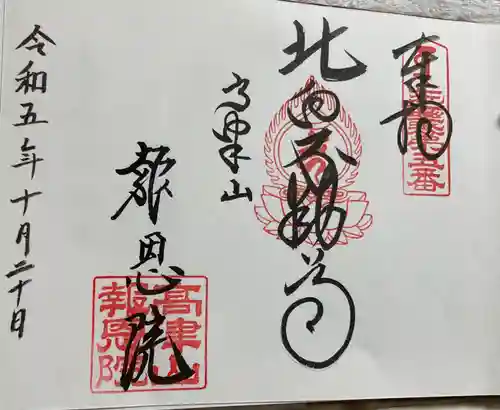 奉拝
北向不動尊
高津山
報恩院
高津山
報恩院
令和五年十月二十日